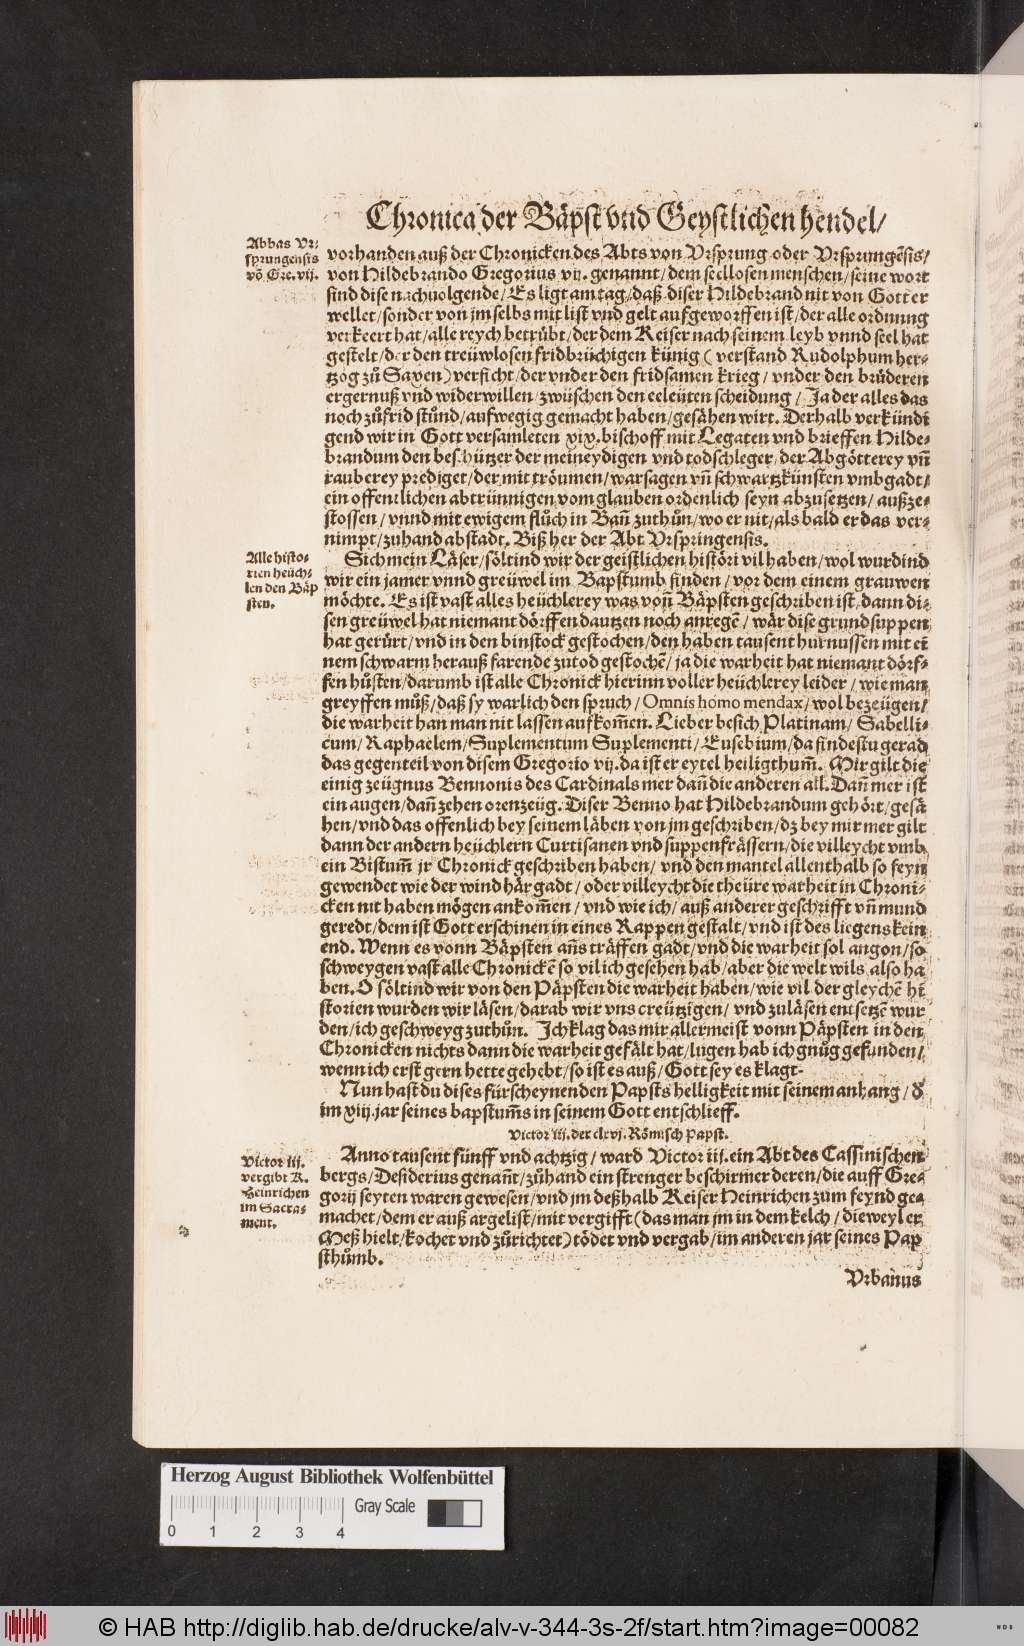 Chronica der Bäpst vnd Geystlichen hendel/
Abbas Vr-
sprungensis
võ Gre. vij.
vorhanden auß der Chronicken des Abts von Vrsprung oder Vrsprungẽsis/
von Hildebrando Gregorius vij. genannt/ dem seellosen menschen/ seine wort
sind dise nachuolgende/ Es ligt am tag/ daß diser Hildebrand nit von Gott er
wellet/ sonder von jm selbs mit list vnd gelt aufgeworffen ist/ der alle ordnung
verkeert hat/ alle reych betrübt/ der dem Keiser nach seinem leyb vnnd seel hat
gestelt/ der den treüwlosen fridbrüchigen künig ( verstand Rudolphum her-
tzog zů Saxen) verficht/ der vnder den fridsamen krieg/ vnder den brüderen
ergernuß vnd widerwillen/ zwüschen den eeleüten scheidung/ Ja der alles das
noch zů frid stůnd/ aufwegig gemacht haben/ gesähen wirt. Derhalb verkündi
gend wir in Gott versamleten xix. bischoff mit Legaten vnd brieffen Hilde-
brandum den beschützer der meineydigen vnd todschleger/ der Abgötterey vñ
rauberey prediget/ der mit tröumen/ warsagen vñ schwartzkünsten vmbgadt/
ein offentlichen abtrünnigen vom glauben ordenlich seyn abzusetzen/ außze-
stossen/ vnnd mit ewigem flůch in Bañ zuthůn/ wo er nit/ als bald er das ver-
nimpt/ zuhand abstadt. Biß her der Abt Vrspringensis.
Alle histo-
rien heüch-
len den Bäp
sten.
Sich mein Läser/ söltind wir der geistlichen histöri vil haben/ wol wurdind
wir ein jamer vnnd greüwel im Bapstumb finden/ vor dem einem grauwen
möchte. Es ist vast alles heüchlerey was voñ Bäpsten geschriben ist/ dann di-
sen greüwel hat niemant dörffen dautzen noch anregẽ/ wär dise grundsuppen
hat gerürt/ vnd in den binstock gestochen/ den haben tausent hurnussen mit ei
nem schwarm herauß farende zu tod gestochẽ/ ja die warheit hat niemant dörf-
fen hůsten/ darumb ist alle Chronick hierinn voller heüchlerey leider/ wie man
greyffen můß/ daß sy warlich den spruch/ Omnis homo mendax/ wol bezeügen/
die warheit han man nit lassen aufkom̃en. Lieber besich Platinam/ Sabelli-
cum/ Raphaelem/ Suplementum Suplementi/ Eusebium/ da findestu gerad
das gegenteil von disem Gregorio vij. da ist er eytel heiligthum̃. Mir gilt die
einig zeügnus Bennonis des Cardinals mer dañ die anderen all. Dañ mer ist
ein augen/ dañ zehen orenzeüg. Diser Benno hat Hildebrandum gehört/ gesä
hen/ vnd das offenlich bey seinem läben von jm geschriben/ dz bey mir mer gilt
dann der andern heüchlern Curtisanen vnd suppenfrässern/ die villeycht vmb
ein Bistum̃ jr Chronick geschriben haben/ vnd den mantel allenthalb so feyn
gewendet wie der wind här gadt/ oder villeycht die theüre warheit in Chroni-
cken nit haben mögen ankom̃en/ vnd wie ich/ auß anderer geschrifft vñ mund
geredt/ dem ist Gott erschinen in eines Rappen gestalt/ vnd ist des liegens kein
end. Wenn es vonn Bäpsten añs träffen gadt/ vnd die warheit sol angon/ so
schweygen vast alle Chronickẽ so vil ich gesehen hab/ aber die welt wils also ha
ben. O söltind wir von den Päpsten die warheit haben/ wie vil der gleychẽ hi
storien wurden wir läsen/ darab wir vns creützigen/ vnd zuläsen entsetzẽ wur
den/ ich geschweyg zuthůn. Ich klag das mir allermeist vonn Päpsten in den
Chronicken nichts dann die warheit gefält hat/ lugen hab ich gnůg gefunden/
wenn ich erst gern hette gehebt/ so ist es auß/ Gott sey es klagt.
Nun hast du dises fürscheynenden Papsts helligkeit mit seinem anhang/ d̕
im xiij. jar seines bapstum̃s in seinem Gott entschlieff.
Victor iij. der clxvj. Römisch Papst.
Victor iij.
vergibt K.
Heinrichen
im Sacra-
ment.
Anno tausent fünff vnd achtzig/ ward Victor iij. ein Abt des Cassinischen
bergs/ Desiderius genañt/ zůhand ein strenger beschirmer deren/ die auff Gre-
gorij seyten waren gewesen/ vnd jm deßhalb Keiser Heinrichen zum feynd ge-
machet/ dem er auß argelist/ mit vergifft (das man jm in dem kelch/ dieweyl er
Meß hielt/ kochet vnd zůrichtet) tödet vnd vergab/ im anderen jar seines Pap
sthůmb.
Vrbanus
Herzog August Bibliothek Wolfenbüttel
Gray Scale
0 1 2 3 4
© HAB http://diglib.hab.de/drucke/alv-v-344-3s-2f/start.htm?image=00082